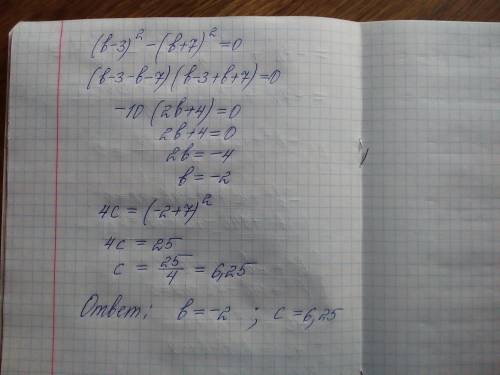 (b-3)² - (b+7)² = 0
(b-3-b-7)(b-3+b+7) = 0
-10(2b+4) = 0
2b+4 = 0
2b = -4
b = -2
4c = (-2+7)²
4c = 25
c = 25/4 = 6,25
Ответ: b = -2 ; c = 6,25